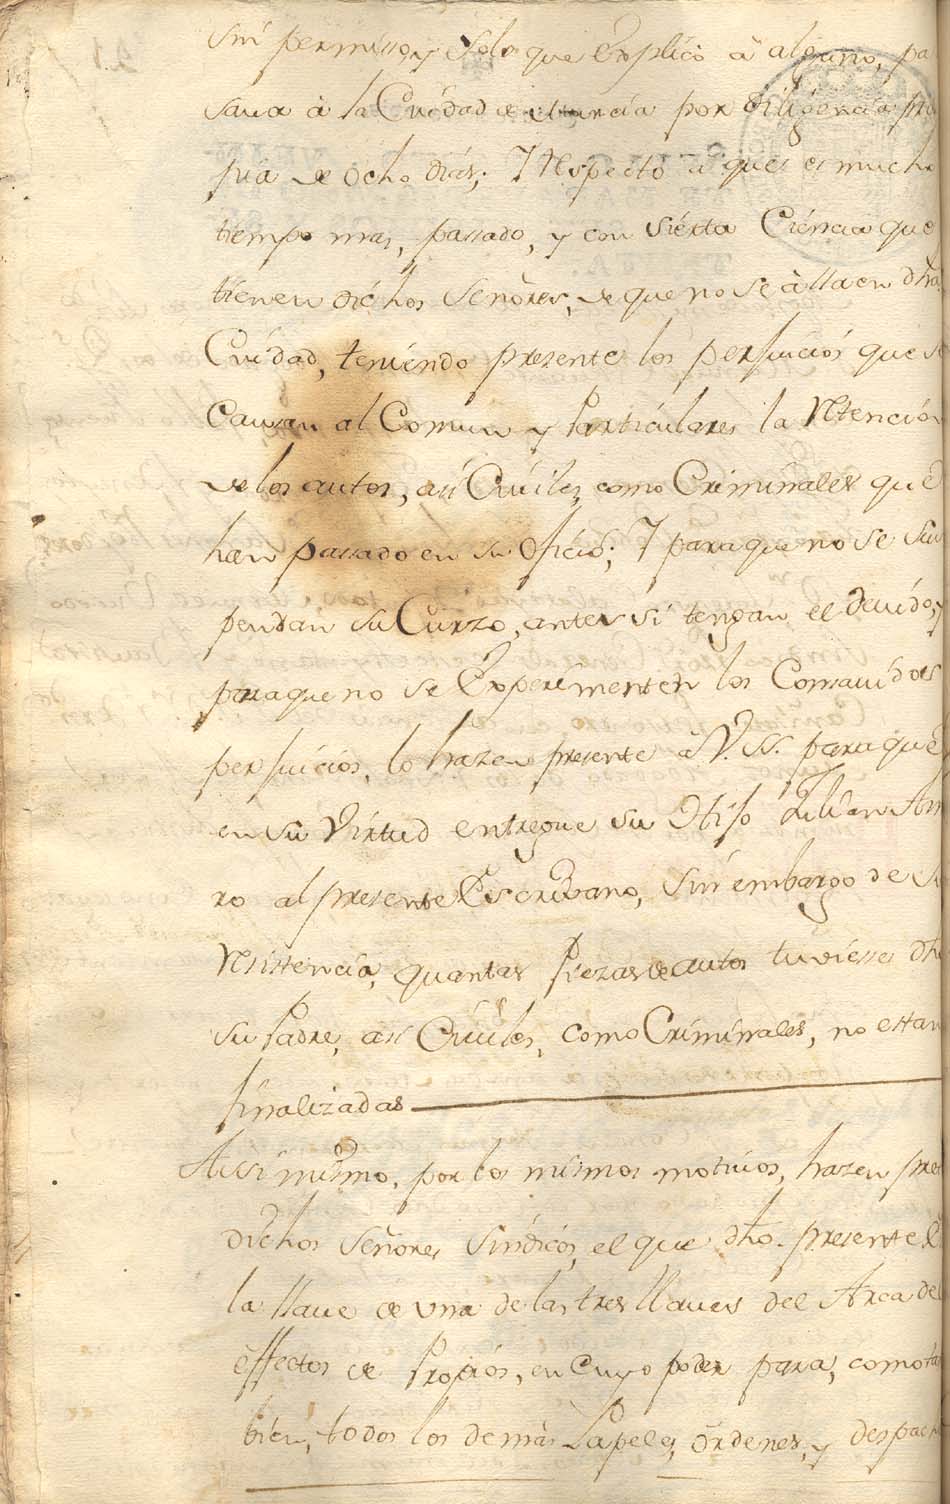 sin permisso, y solo que explicó â alguno, pa
sava â la Ciudad de Murcia por diligencia pro
pia de ocho dias; Y respecto â que es mucho
tiempo mas, passado, y con sierta Ciencia que
tienen dichos Señores, de que no se âlla en dha.
Ciudad, teniendo presente los perjuicios que se
Causan al Comun y Particulares la retencion
de los autos, asi Civiles, como Criminales que
han passado en su Oficio; Y para que no se sus
pendan su Curzo, antes si tengan el devido, y
para que no se Experimenten los Consavidos
perjuicios, lo hazen presente â V. SS. para que
en su Virtud entregue su Hijo
ro al presente Escrivano, sin embargo de su
resistencia, quantas Piezas de autos tuviesse dho
su Padre, asi Civiles, como Criminales, no estan
finalizadas
Assi mismo, por los mismos motivos, hazen pres
dichos Señores Sindicos, el que dho. presente E
la llave de una de las tres llaves del Arca de
effectos de Propios, en Cuyo poder para, como ta
bien, todos los demas Papeles, ordenes, y despac